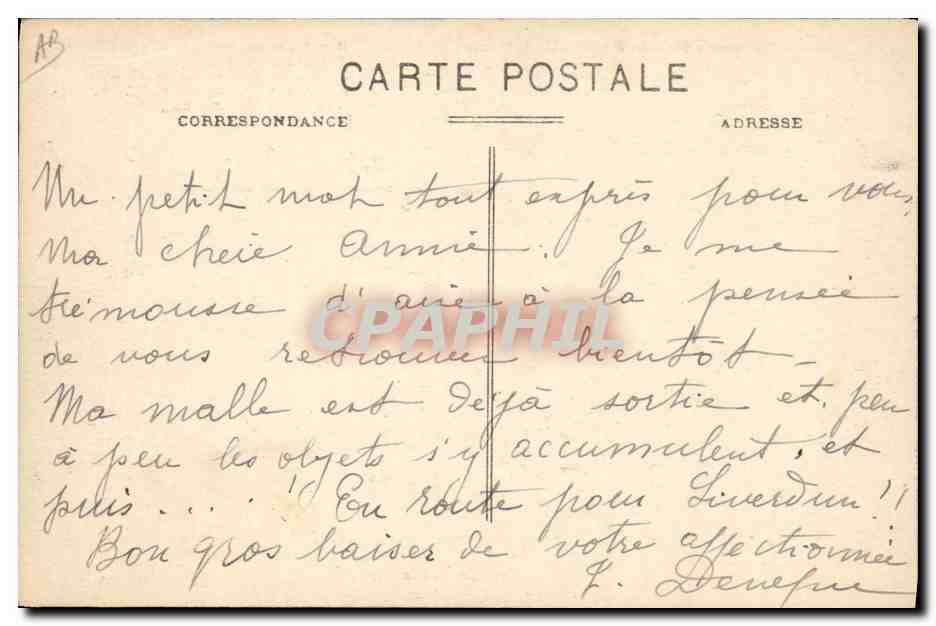 AB
CARTE POSTALE
CORRESPONDANCE
ADRESSE
Un petit mot tout exprès pour vous,
Ma chère Annie. Je me
trémousse d'avie à la pensée
de vous retrouver bientôt –
Ma malle est déjà sortie et, peu
à peu les objets s'y accumulent, et
puis.... ! En route pour Liverdun!!
Bon gros baiser de votre affectionnée
CPAPHIL